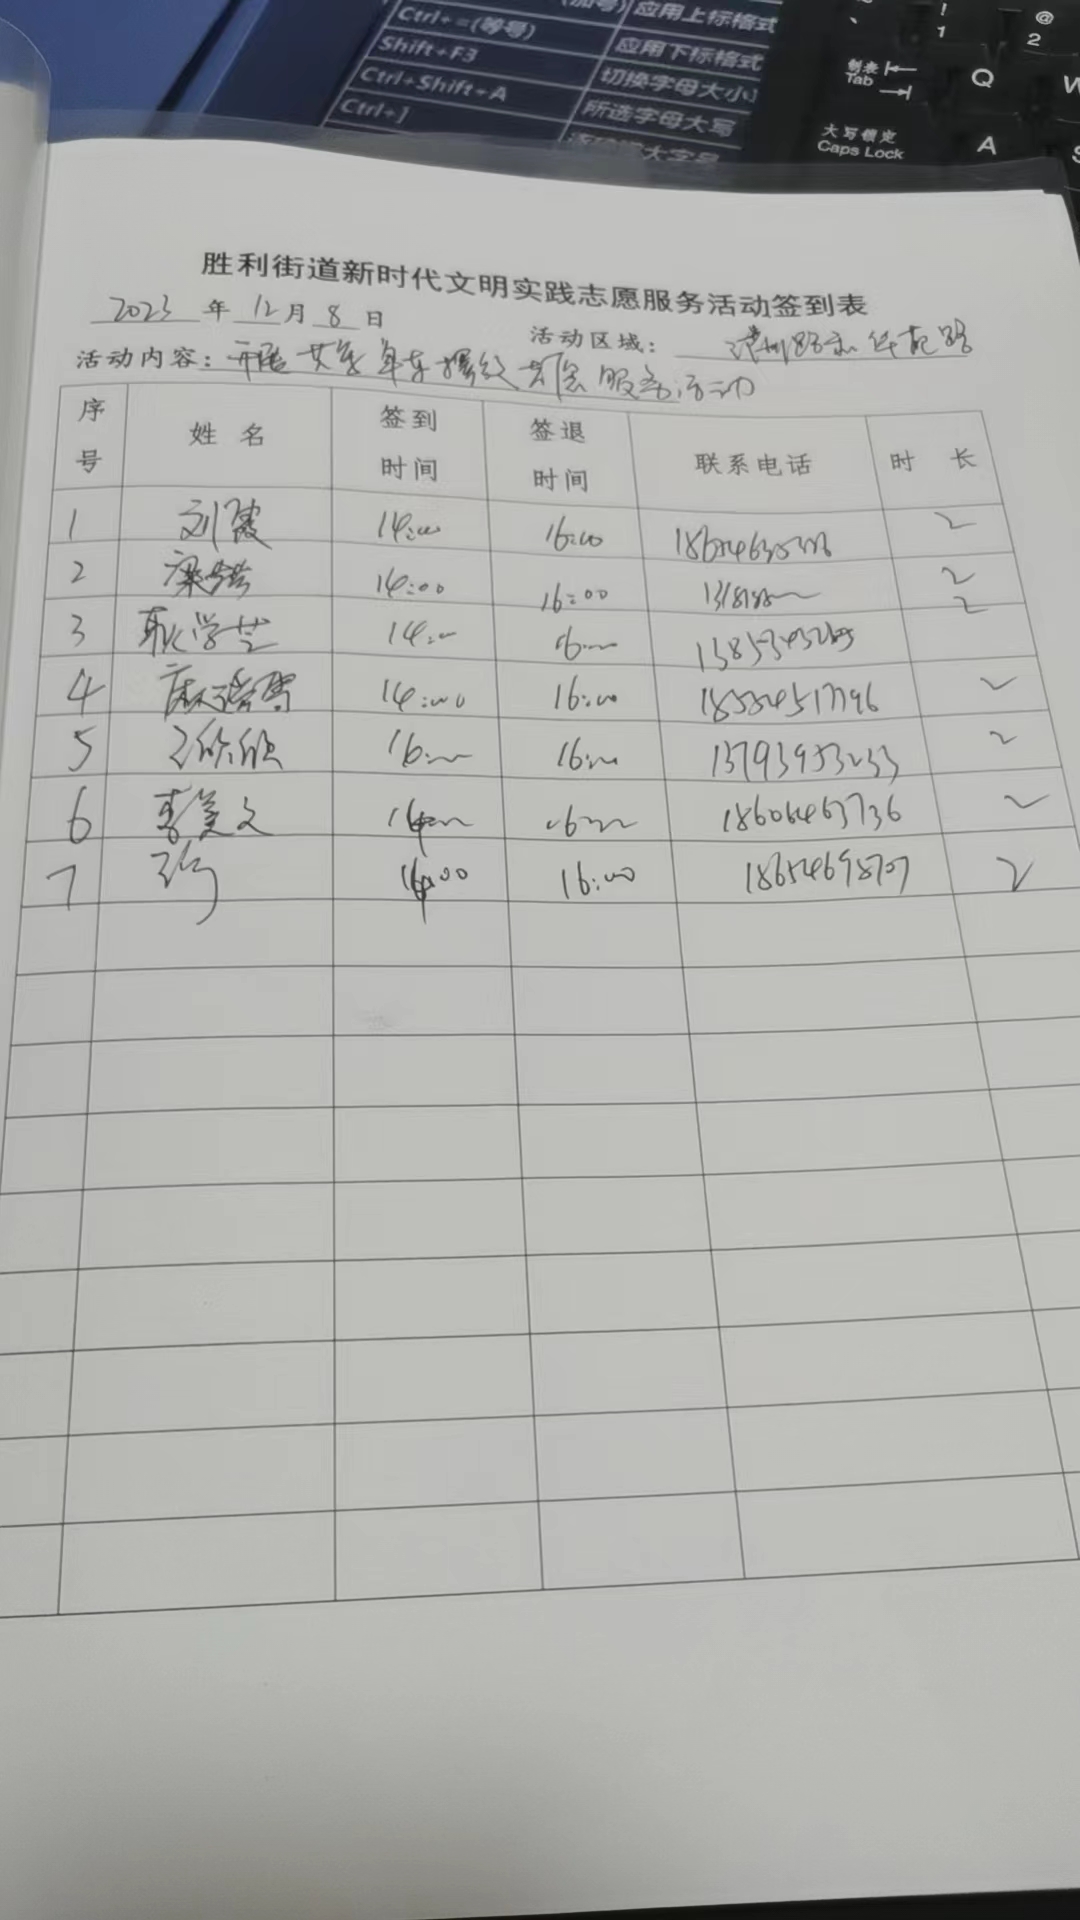 Ctrl+=(等号) 应用上标格式
Shift+F3 应用下标格式
Ctrl+Shift+A 切换字母大小
Ctrl+] 所选字母大写
大字号
! 1 @ 2
制表 Tab Q W
大写锁定 Caps Lock A S
胜利街道新时代文明实践志愿服务活动签到表
2023 年 12 月 8 日
活动区域:
活动内容: 开展共享单车摆放志愿服务活动
序号 姓名 签到时间 签退时间 联系电话 时长
1 刘霞 14:00 16:00 2
2 14:00 16:00 2
3 耿学芝 14:00 16:00 2
4 14:00 16:00 18554517796 2
5 王欣欣 16:00 16:00 13793953233 2
6 李美文 14:00 16:00 18606463736 2
7 14:00 16:00 18654698707 2